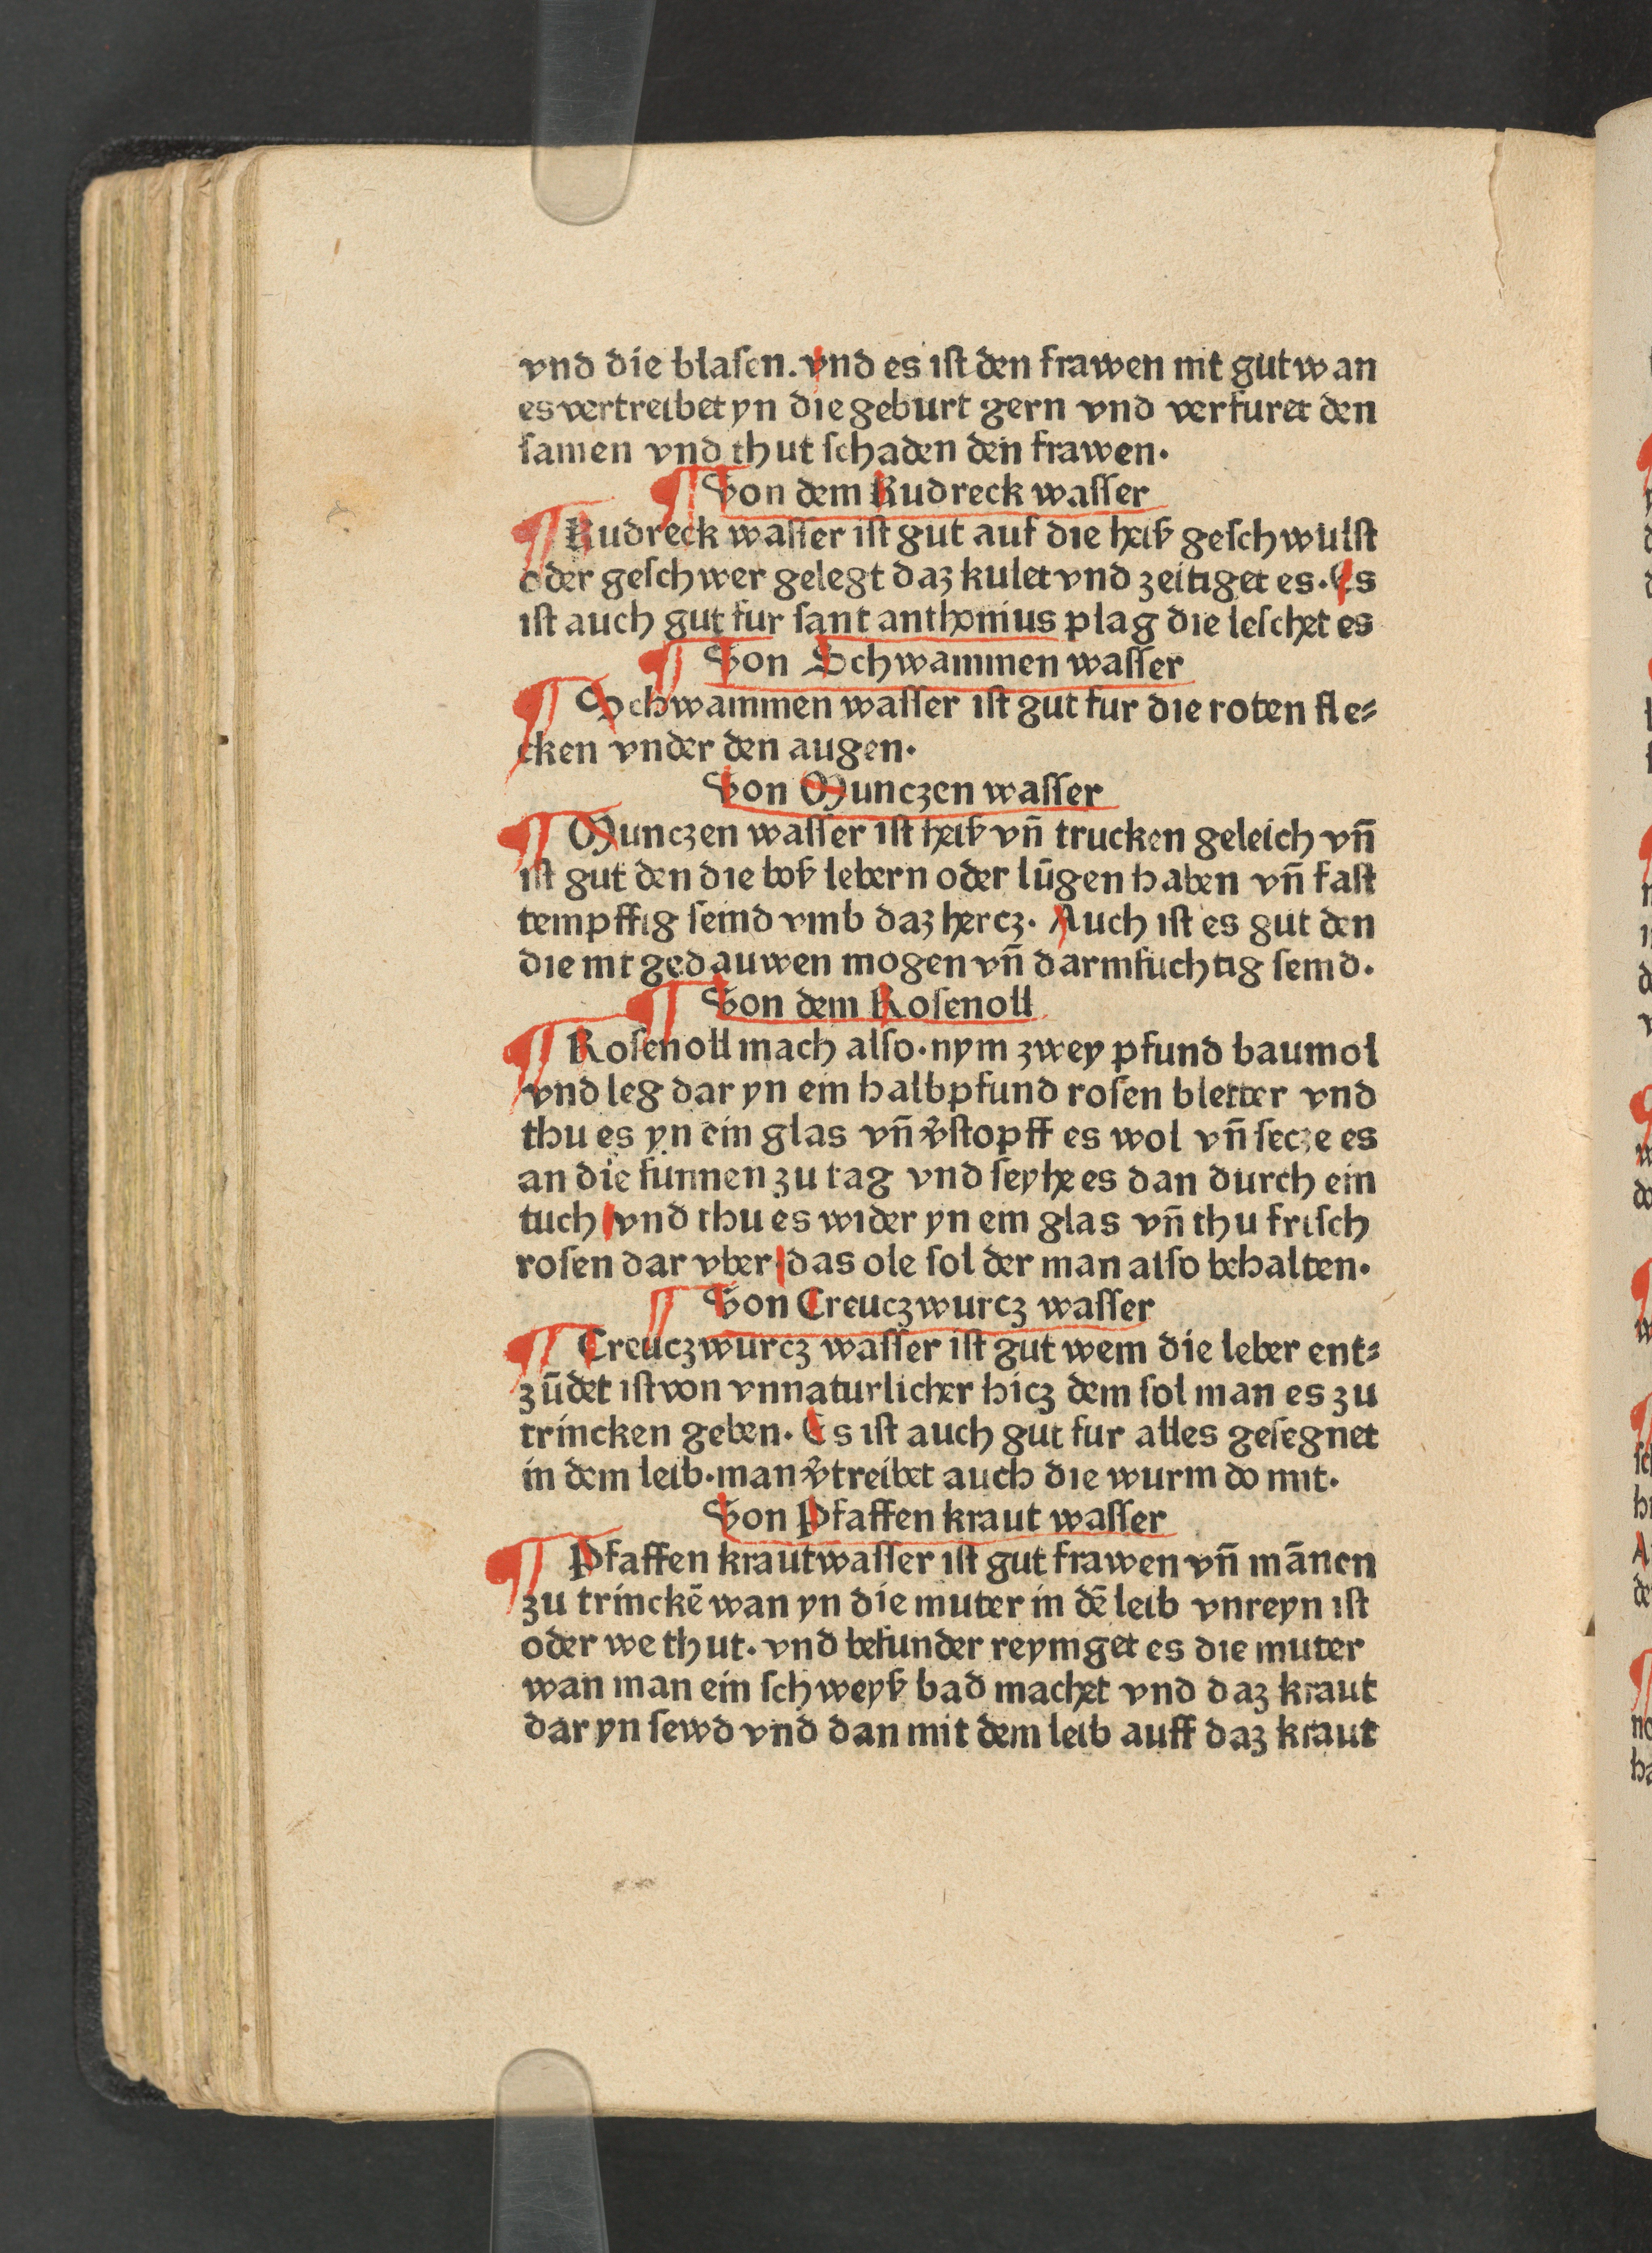 vnd die blaſen. vnd es iſt den frawen nit gut wan
es vertreibet yn die geburt gern vnd verfuret den
ſamen vnd thut ſchaden den frawen.
¶ Von dem Kudreck waſſer
¶ Kudreck waſſer iſt gut auf die heiß geſchwulſt
oder geſchwer gelegt daz kulet vnd zeitiget es. Es
iſt auch gut fur ſant anthonius plag die leſchet es
¶ Von Schwammen waſſer
¶ Schwammen waſſer iſt gut fur die roten fle⸗
cken vnder den augen.
Von Munczen waſſer
¶ Munczen waſſer iſt heiß vñ trucken geleich vñ
iſt gut den die boß lebern oder lūgen haben vñ faſt
tempffig ſeind vmb daz hercz. Auch iſt es gut den
die nit gedauwen mogen vñ darmſuchtig ſeind.
¶ Von dem Roſenoll
¶ Roſenoll mach alſo. nym zwey pfund baumol
vnd leg dar yn ein halb pfund roſen bletter vnd
thu es yn ein glas vñ v̄ſtopff es wol vñ ſecze es
an die ſunnen zu tag vnd ſeyhe es dan durch ein
tuch vnd thu es wider yn ein glas vñ thu friſch
roſen dar vber das ole ſol der man alſo behalten.
¶ Von Creuczwurcz waſſer
¶ Creuczwurcz waſſer iſt gut wem die leber ent⸗
zūdet iſt von vnnaturlicher hicz dem ſol man es zu
trincken geben. Es iſt auch gut fur alles geſegnet
in dem leib. man v̄treibet auch die wurm do mit.
Von Pfaffen kraut waſſer
¶ Pfaffen kraut waſſer iſt gut frawen vñ mānen
zu trinckē wan yn die muter in dē leib vnreyn iſt
oder we thut. vnd beſunder reyniget es die muter
wan man ein ſchweyß bad machet vnd daz kraut
dar yn ſewd vnd dan mit dem leib auff daz kraut